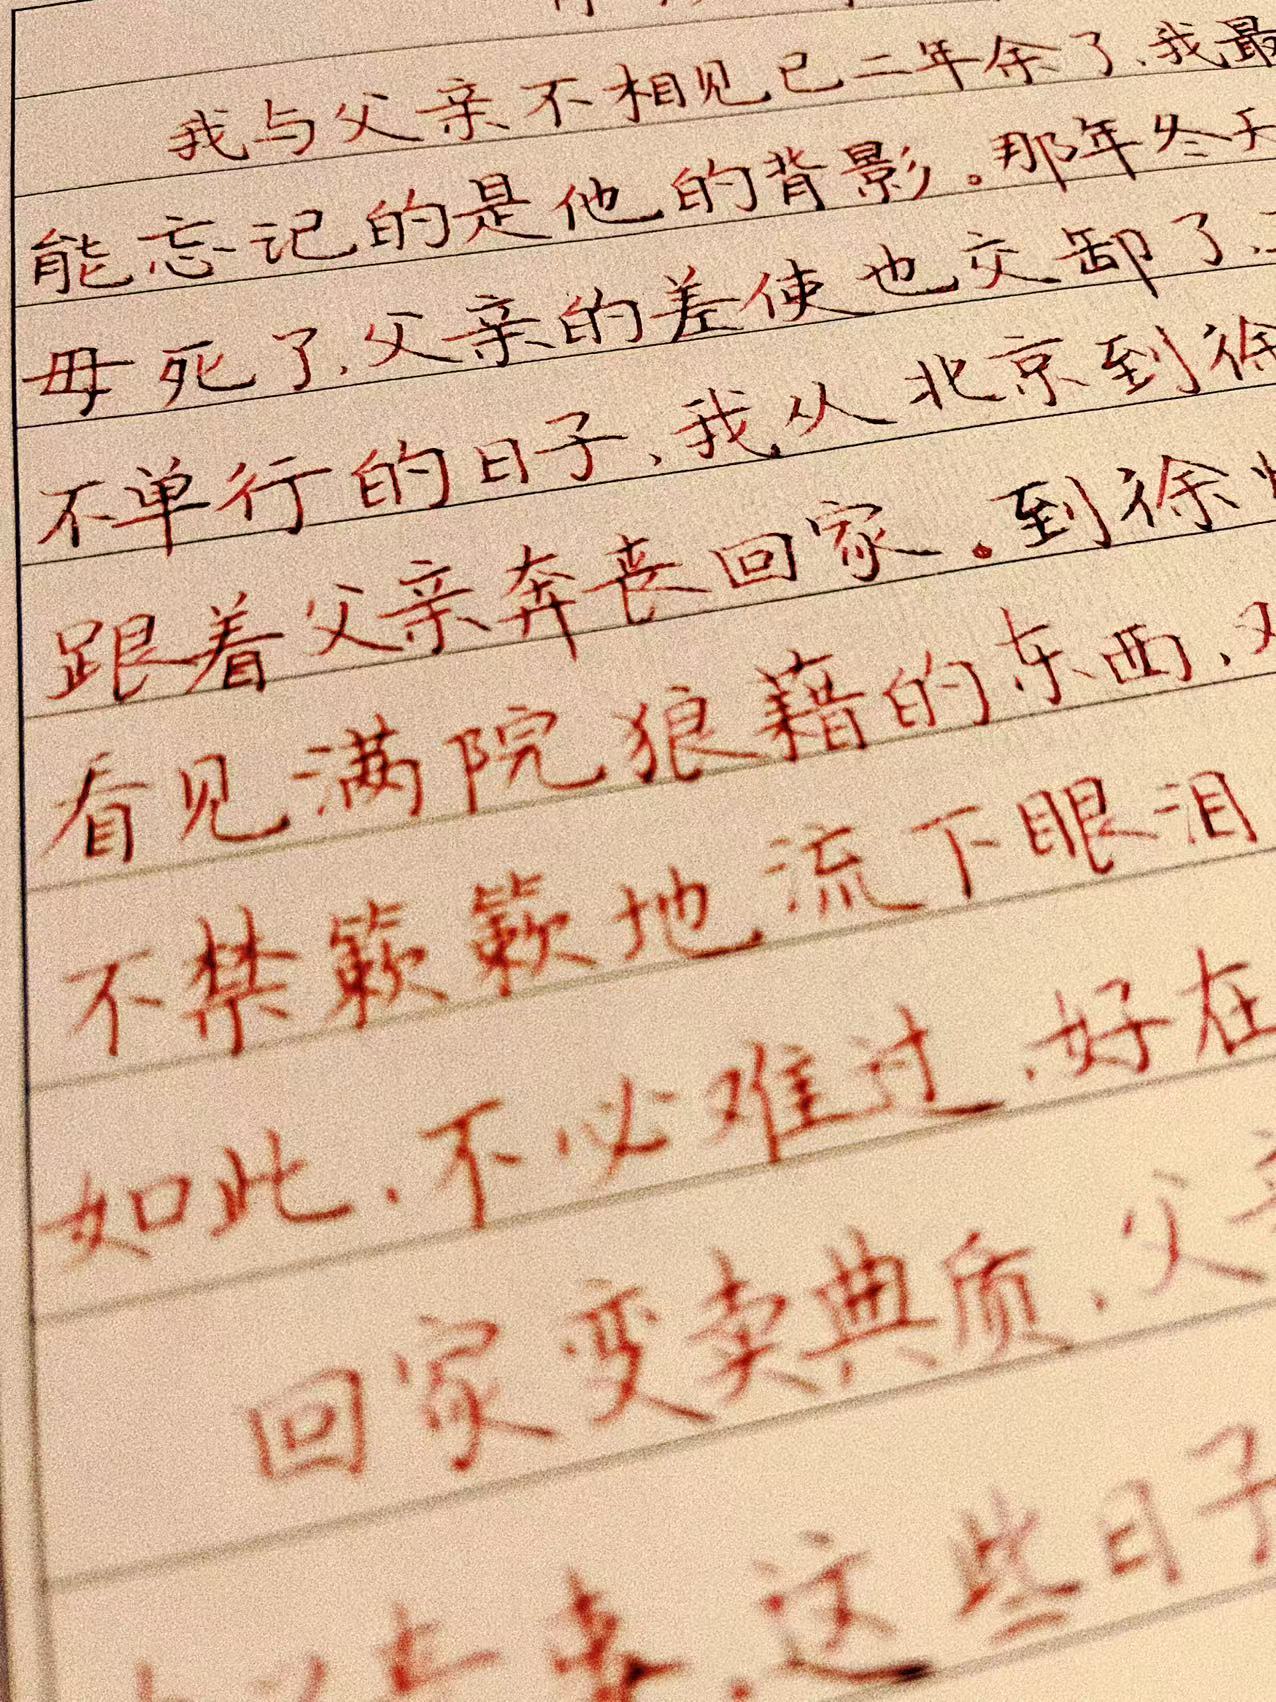 我与父亲不相见已二年余了,我最
能忘记的是他的背影。那年冬天
母死了,父亲的差使也交卸了,
不单行的日子,我从北京到徐
跟着父亲奔丧回家。到徐
看见满院狼藉的东西,
不禁簌簌地流下眼泪
如此,不必难过,好在
回家变卖典质,父亲
这些日子